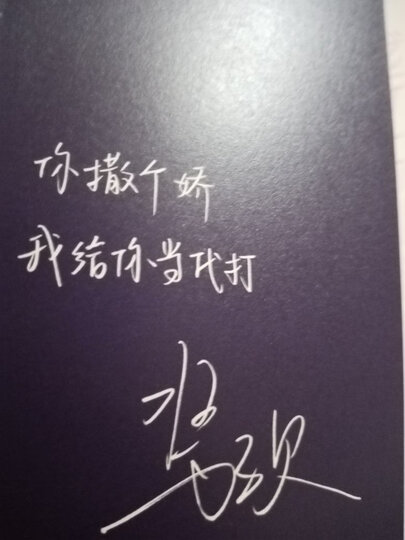 你撒个娇
我给你当代打